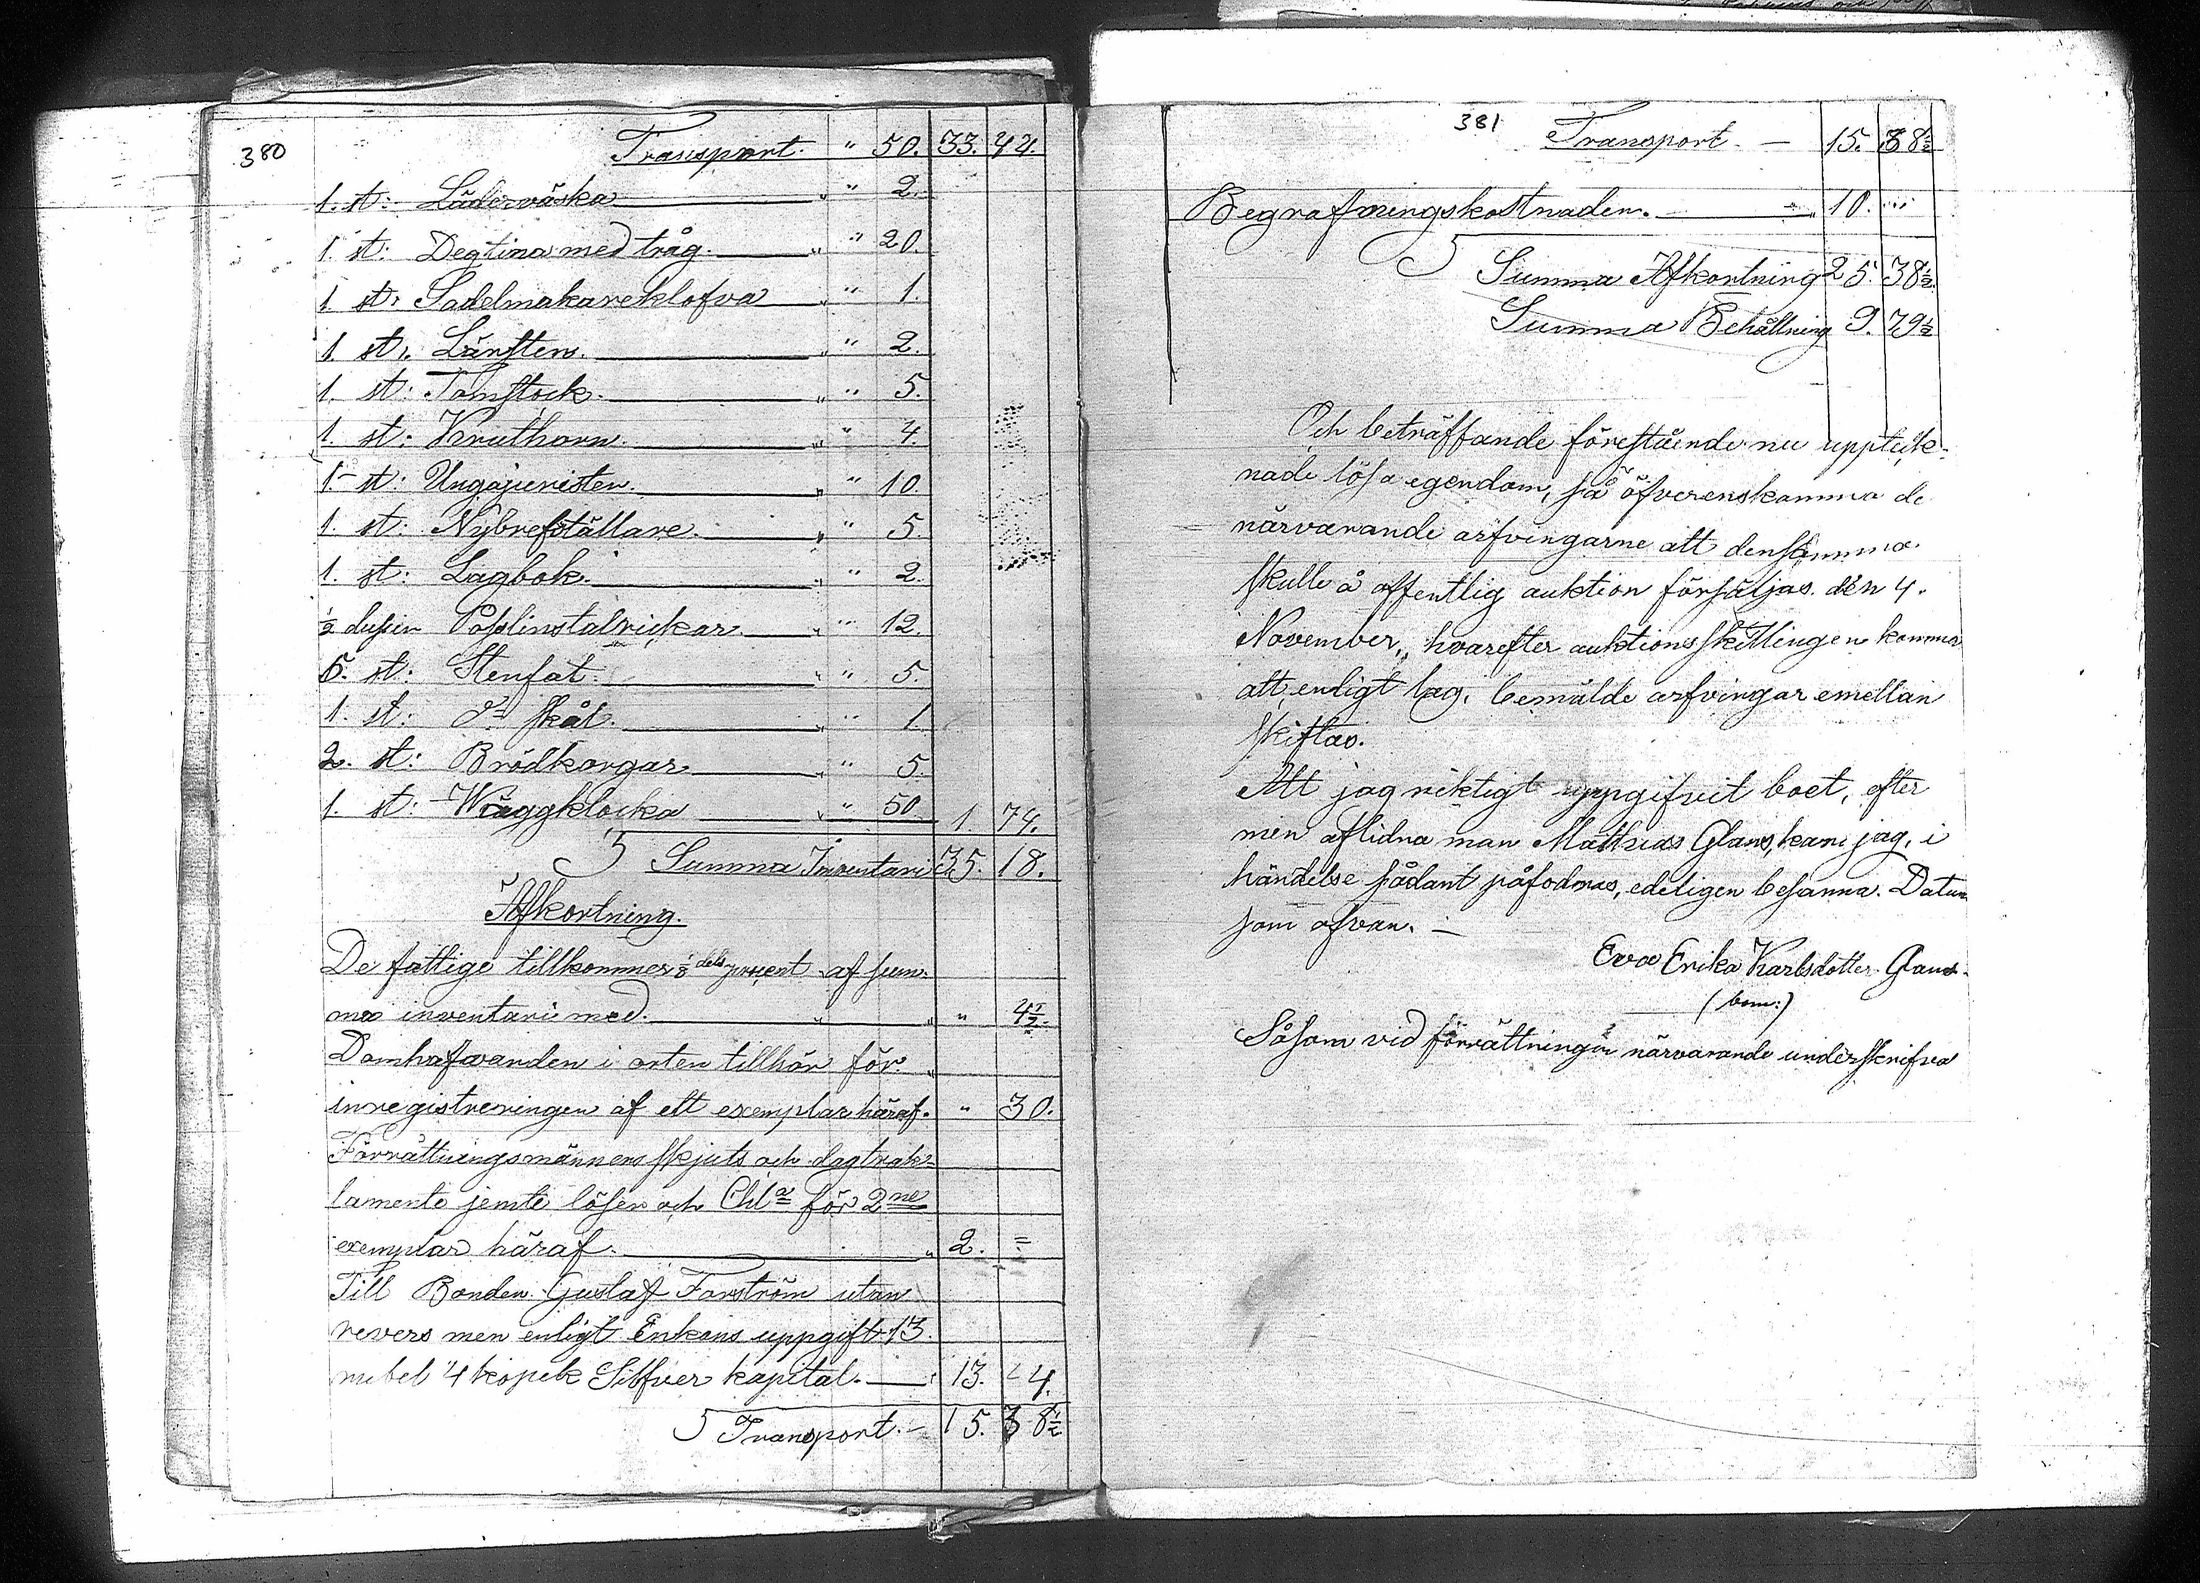 380
Transport. " 50. 33. 44.
1. st: Läderväska " 2.
1. st: Degtina med tråg. " 20.
1. st: Sadelmakareklofva " 1.
1. st:
1. st: Tomstock. " 5.
1. st: Kruthorn. " 4.
1. st: Ungajuristen. " 10.
1. st: Nybrefställare. " 5.
1. st: Lagbok. " 2.
½ dussin Poslinstalrickar. " 12.
5. st: Stenfat. " 5.
1. st: do skål. " 1.
2. st: Brödkorgar " 5.
1. st: Wäggklocka " 50. 1. 74.
Summa Inventarie 35. 18.
Afkortning.
De fattige tillkommer ⅛ dels procent af sum-
ma inventarie med. " 4½.
Domhafvanden i orten tillhör för
inregistreringen af ett exemplar häraf. " 30.
Förrättningsmännens skjuts och dagtrak-
tamente jemte lösen och Chta för 2ne
exemplar häraf. 2. =
Till Bonden Gustaf Forström utan
revers men enligt Enkans uppgift 13
rubel 4 kopek Silfver kapital. 13. 4.
Transport. 15. 38½
381
Transport. 15. 38½
Begrafningskostnaden. 10. "
Summa Afkortning 25. 38½
Summa Behållning 9. 79½
Och beträffande förestående nu uppteck-
nade lösa egendom, så öfverenskomma de
närvarande arfvingarne att densamma
skulle å offentlig auktion försäljas den 4.
November, hvarefter auktionsskillingen komma
att enligt lag, bemälde arfvingar emellan
skiftas.
Att jag riktigt uppgifvit boet, efter
min aflidna man Mathias Glans, kan jag, i
händelse sådant påfodras, edeligen besanna. Datum
som ofvan. —
Eva Erika Karlsdotter Glans.
(bom:)
Såsom vid förrättningen närvarande underskrifva